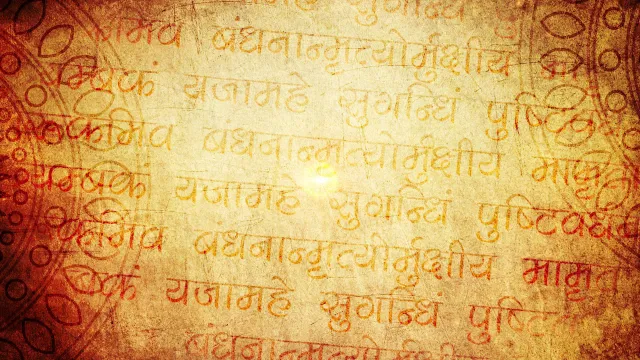 सुगन्धिं पुष्टि
मिव बंधनान्मृत्योर्मुक्षीय मा
म्बकं यजामहे सुगन्धिं पुष्टिव
कमिव बंधनान्मृत्योर्मुक्षीय मामृ
यम्बकं यजामहे सुगन्धिं पुष्टिवर्ध
कमिव बंधनान्मृत्योर्मुक्षीय मामृत
बकं यजामहे सुगन्धिं पुष्टि
बंधनान्मृत्योर्मुक्षीय